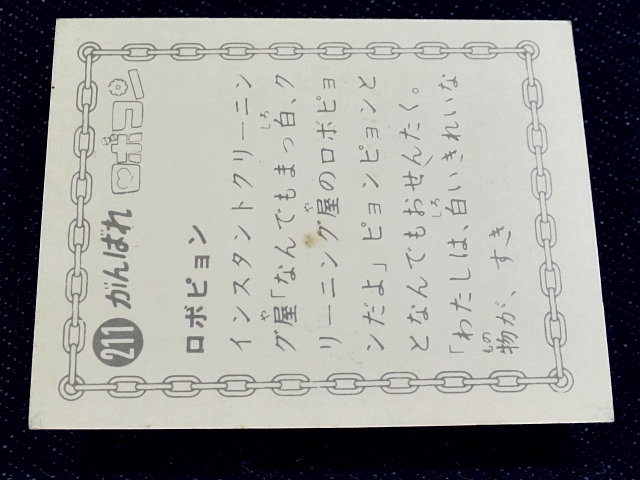 211 がんばれ ロボコン
ロボピョン
インスタントクリーニン
グ屋「なんでもまっ白、ク
リーニング屋のロボピョ
ンだよ」ピョンピョンと
となんでもおせんたく。
「わたしは、白いきれいな
物が、すき